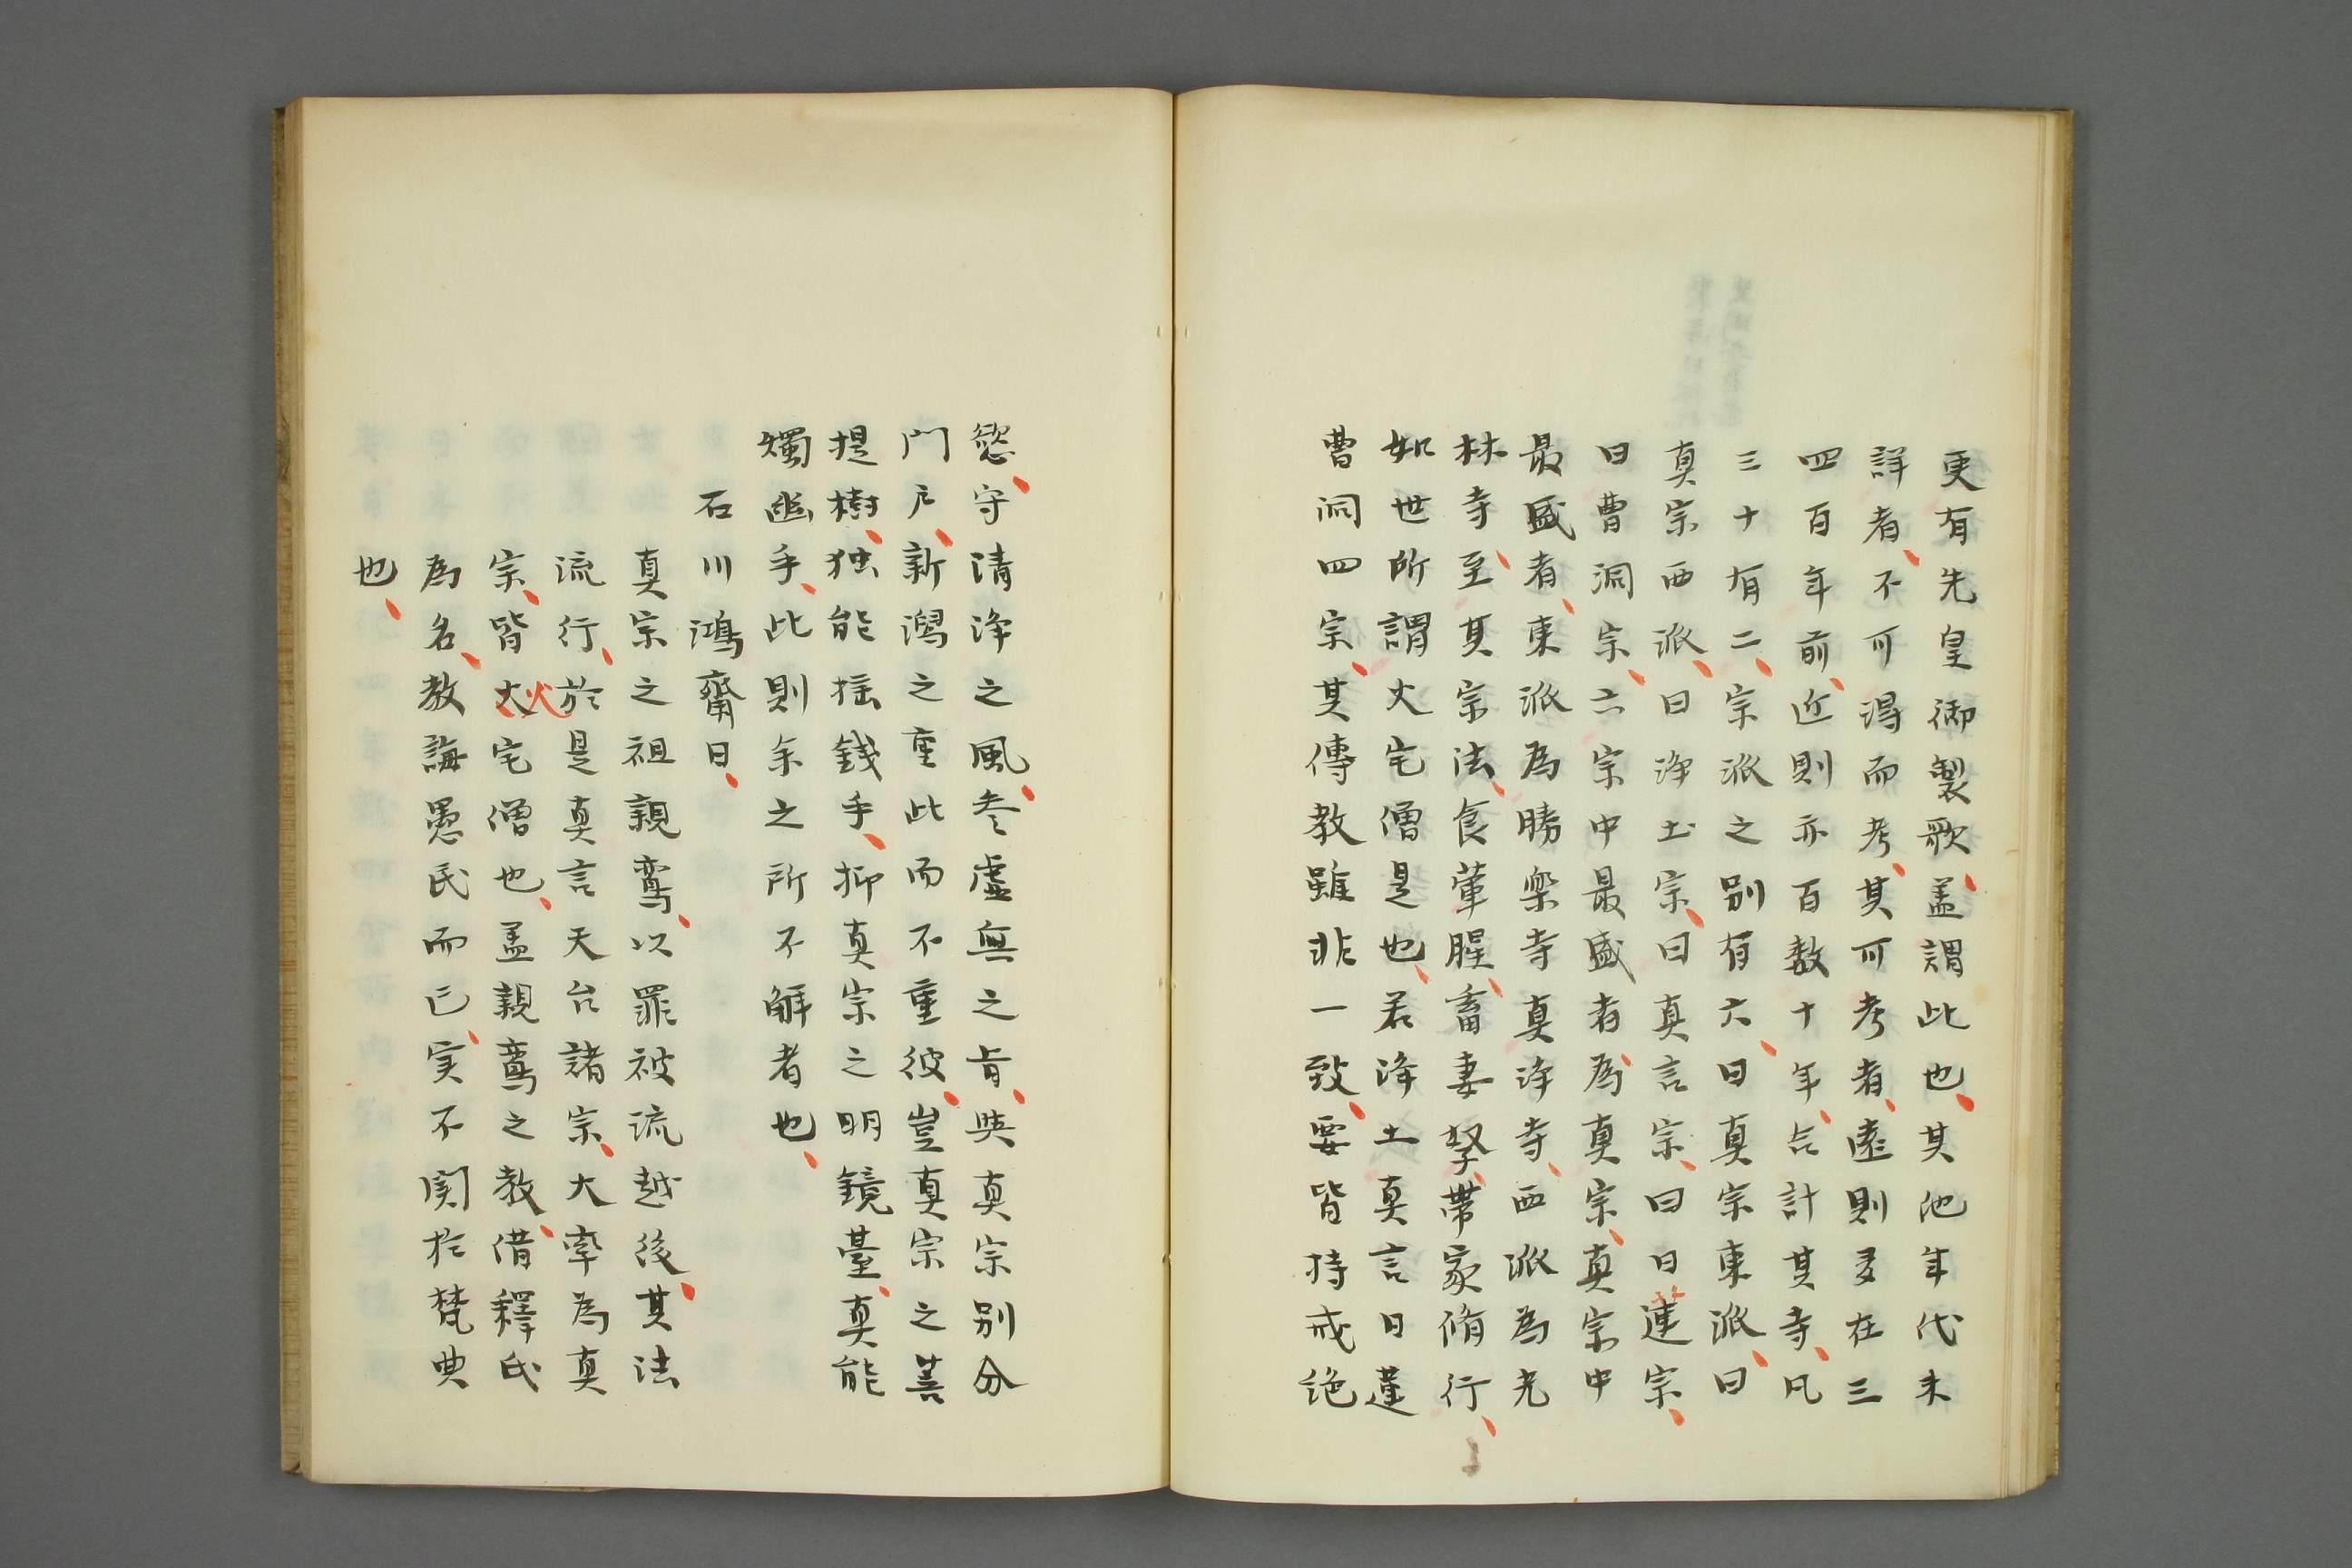 更有先皇御製歌、盖謂此也、其池年代未
詳者、不可得而考、其可考者、遠則多在三
四百年前、近則亦百数十年、合計其寺、凡
三十有二、宗派之别有六、曰真宗東派、曰
真宗西派、曰浄土宗、曰真言宗、曰日蓮宗、
曰曹洞宗、六宗中最盛者為真宗、真宗中
最盛者、東派為勝楽寺真浄寺、西派為光
林寺、至其宗法、食葷腥、畜妻孥、帯家脩行、
如世所謂火宅僧是也、若浄土真言日蓮
曹洞四宗、其傳教雖非一致、要皆持戒绝
慾、守清浄之風、参虚無之旨、與真宗别分
門戸、新潟之重此而不重彼、豈真宗之菩
提樹、独能揺錢乎、抑真宗之明鏡臺、真能
燭幽乎、此則余之所不解者也、
石川鴻齋曰、
真宗之祖親鸞、以罪被流越後、其法
流行、於是真言天台諸宗、大率為真
宗、皆火宅僧也、盖親鸞之教、借釋氏
為名、教誨愚民而已、実不関於梵典
也、